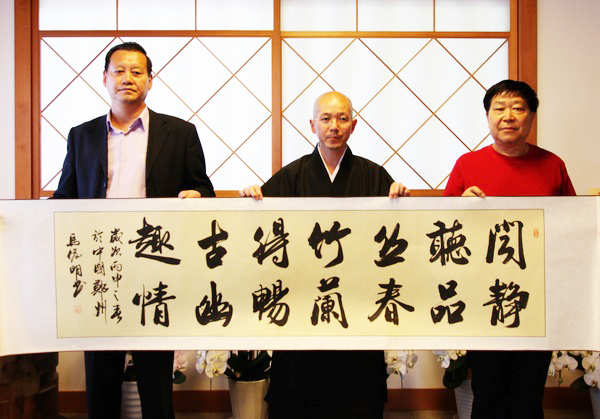 闲聽丛竹得古趣
静品春蘭暢幽情
歲次丙申之春
於中國鄭州
馬明書